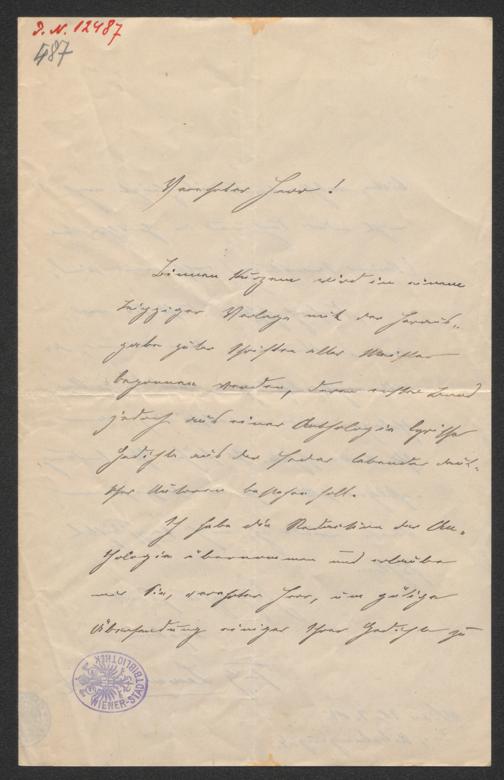 J. N. 12487
487
Verehrter Herr!
Binnen Kurzem wird in einem
Leipziger Verlage mit der Heraus-
gabe guter Schriften alter Meister
begonnen werden, deren erster Band
jedoch aus einer Anthologie lyrischer
Gedichte aus der Feder lebender deut-
scher Autoren bestehen soll.
Ich habe die Redaktion der An-
thologie übernommen und erlaube
mir Sie, verehrter Herr, um gütige
Übersendung einiger Ihrer Gedichte zu
WIENER-STADTBIBLIOTHEK